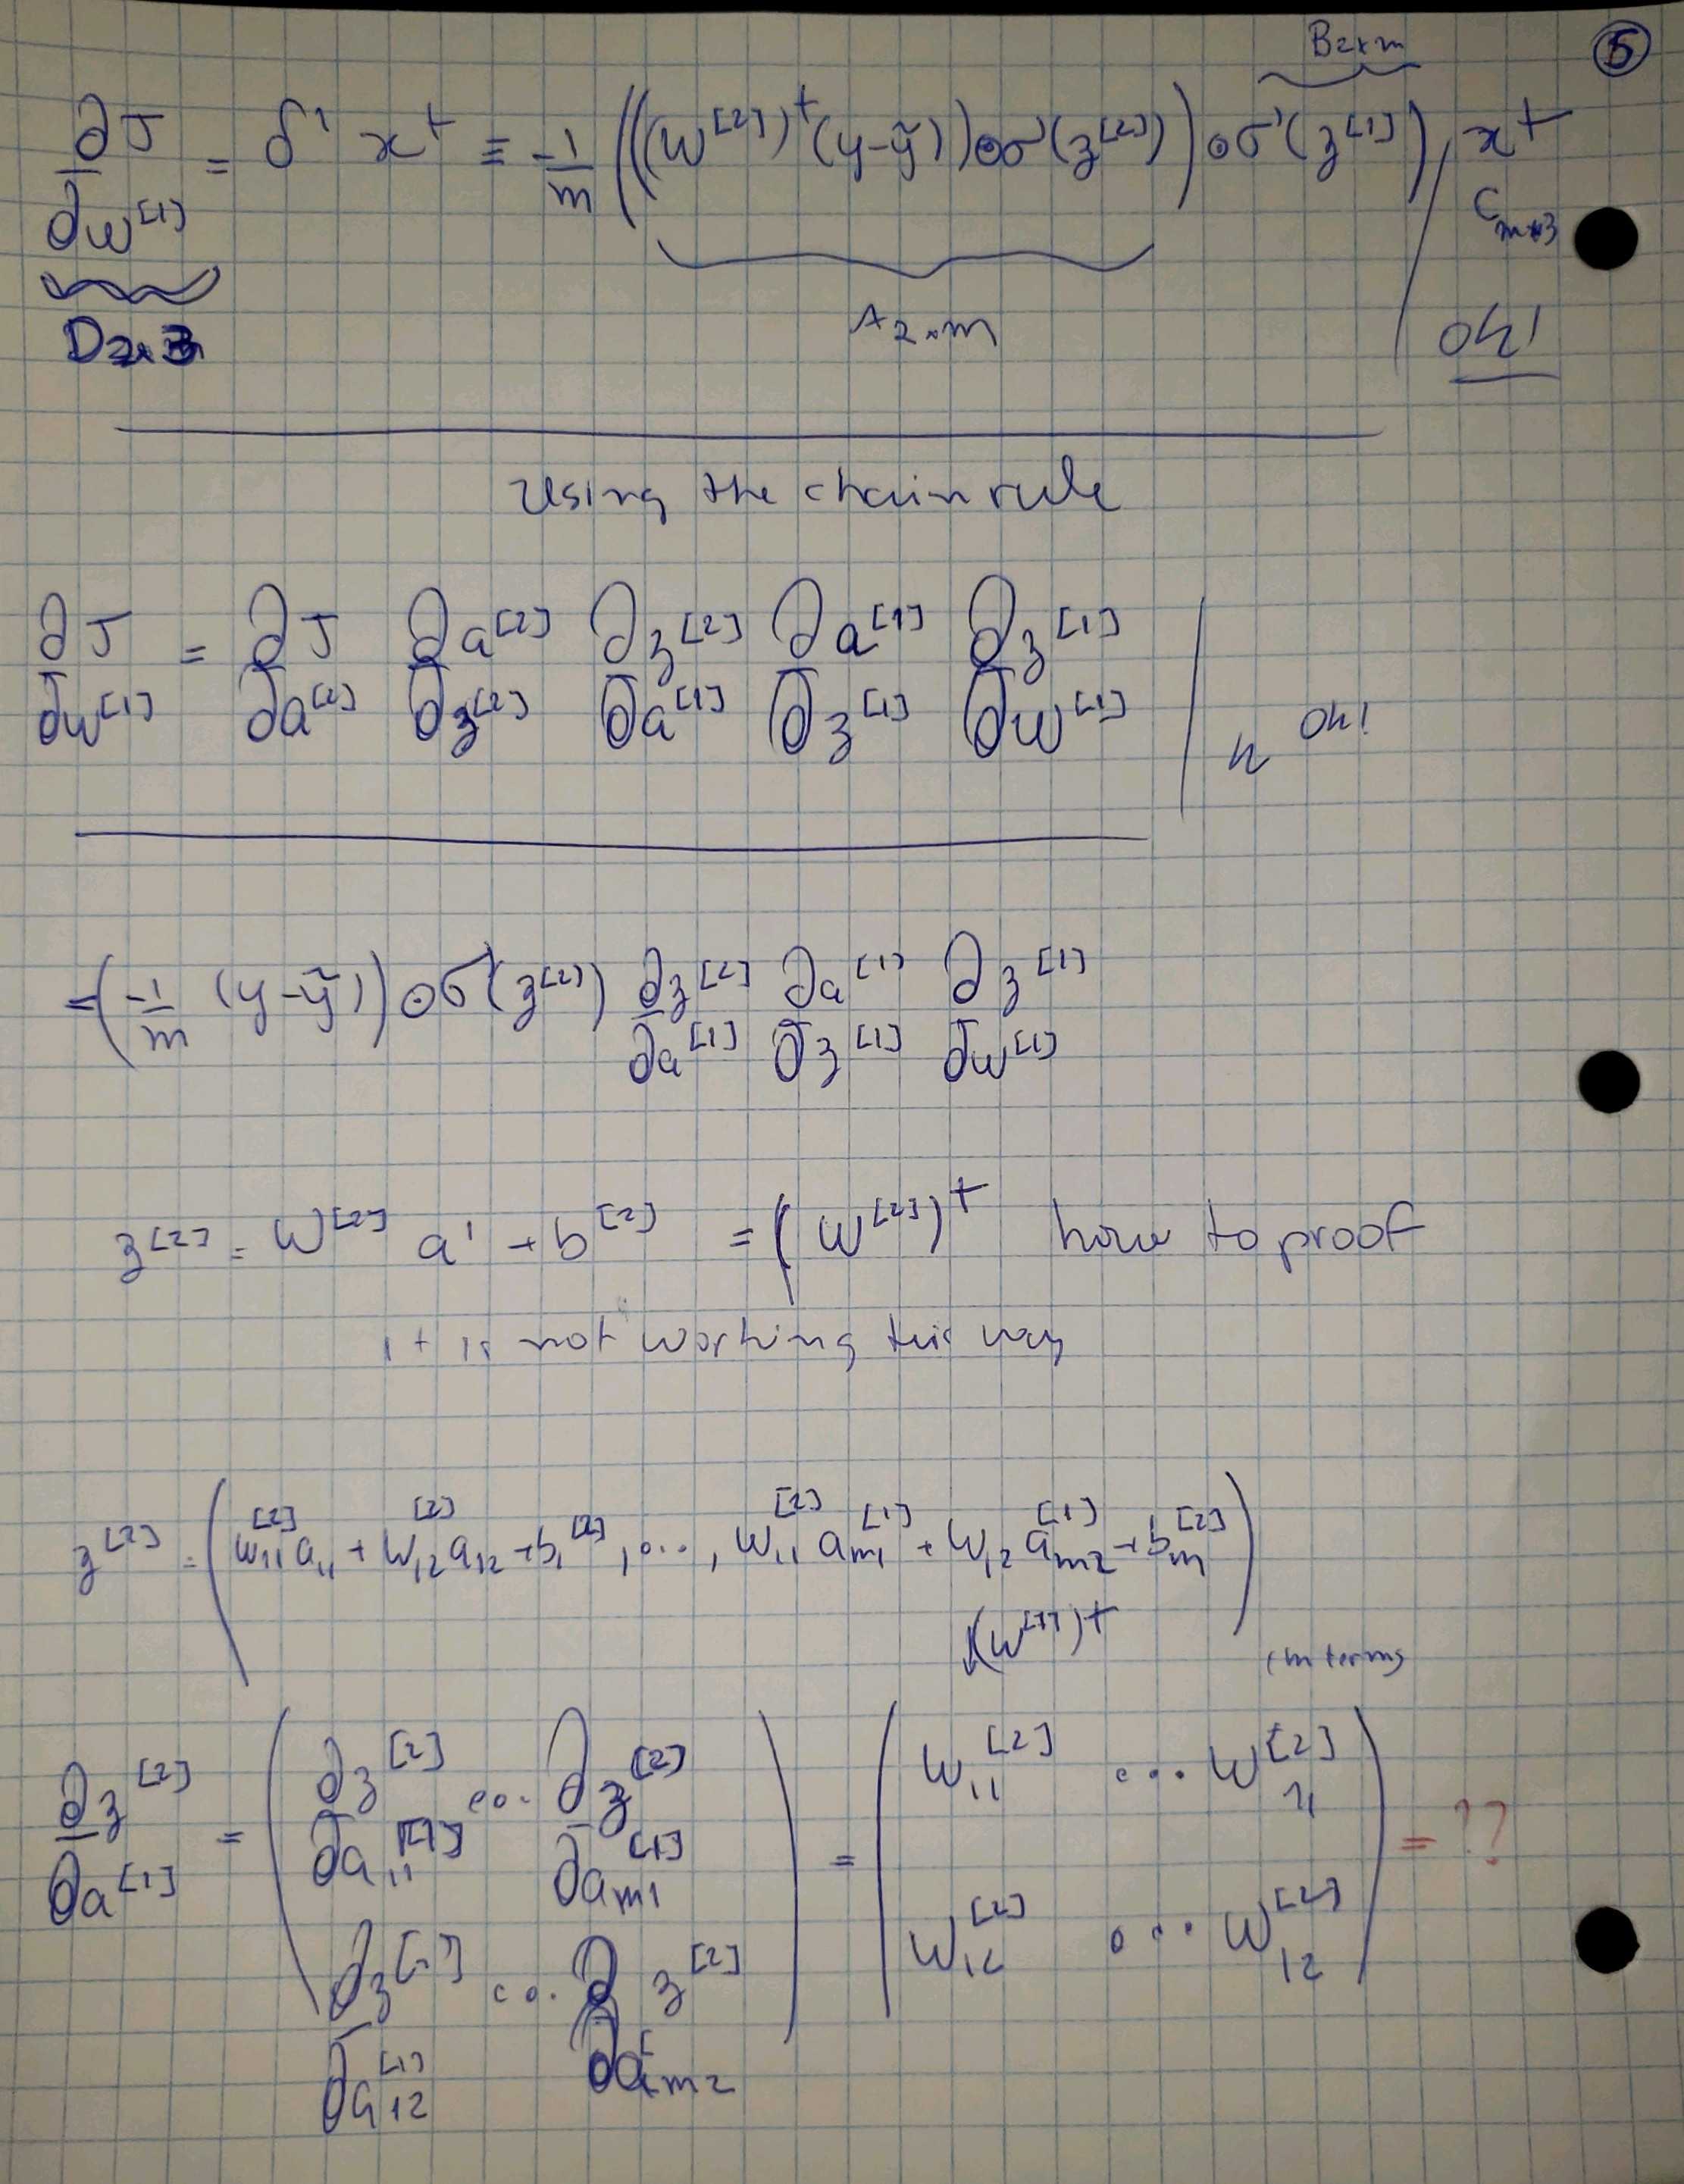 B2xm
⑤
∂J/∂w^[1] = δ¹ x^t ≡ -1/m (((w^[2])^t (y-ỹ)) ⊙ σ'(z^[2])) ⊙ σ'(z^[1])) / x^t
C m*3
D2x3
A2xm
ok!
Using the chain rule
∂J/∂w^[1] = ∂J/∂a^[2] ∂a^[2]/∂z^[2] ∂z^[2]/∂a^[1] ∂a^[1]/∂z^[1] ∂z^[1]/∂w^[1]
ok!
= (-1/m (y-ỹ)) ⊙ σ'(z^[2]) ∂z^[2]/∂a^[1] ∂a^[1]/∂z^[1] ∂z^[1]/∂w^[1]
z^[2] = W^[2] a' + b^[2] = (W^[2])^t how to proof
it is not working this way
z^[2] = (w11^[2] a11 + w12^[2] a12 + b1^[2], ..., w11^[2] am1^[1] + w12 am2^[1] + bm^[2])
(w^[1])^t
(m terms
∂z^[2]/∂a^[1] = (∂z^[2]/∂a11^[1] ... ∂z^[2]/∂am1^[1] = (w11^[2] ... w11^[2] = ??
∂z^[2]/∂a12^[1] ... ∂z^[2]/∂am2) w12^[2] ... w12^[2])